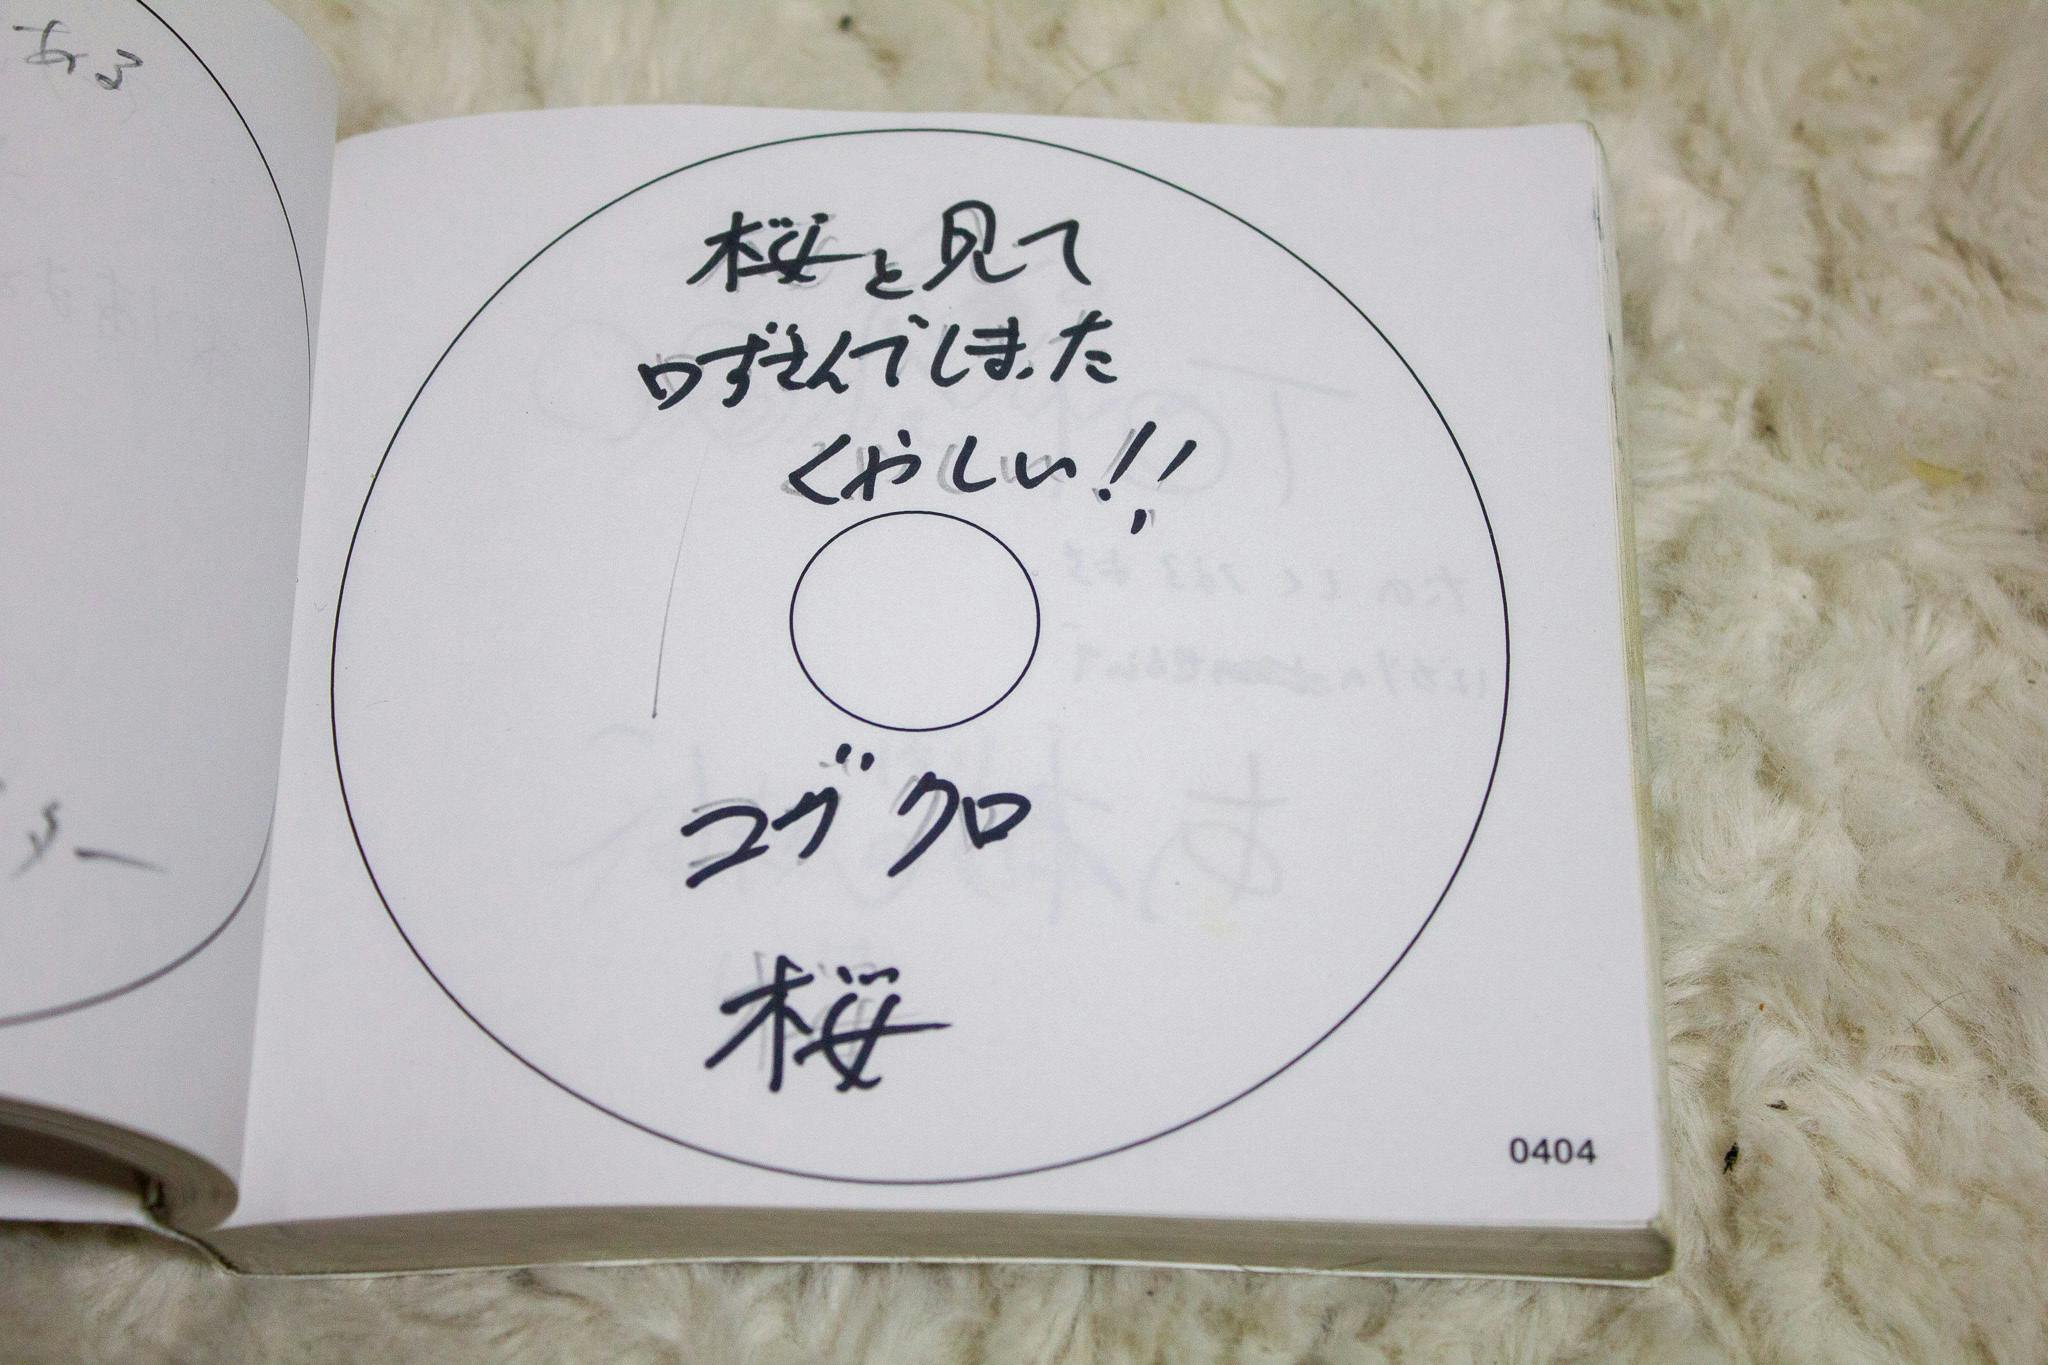 ある
ー
桜と見て
口ずさんでしまった
くやしい!!
コブクロ
桜
0404